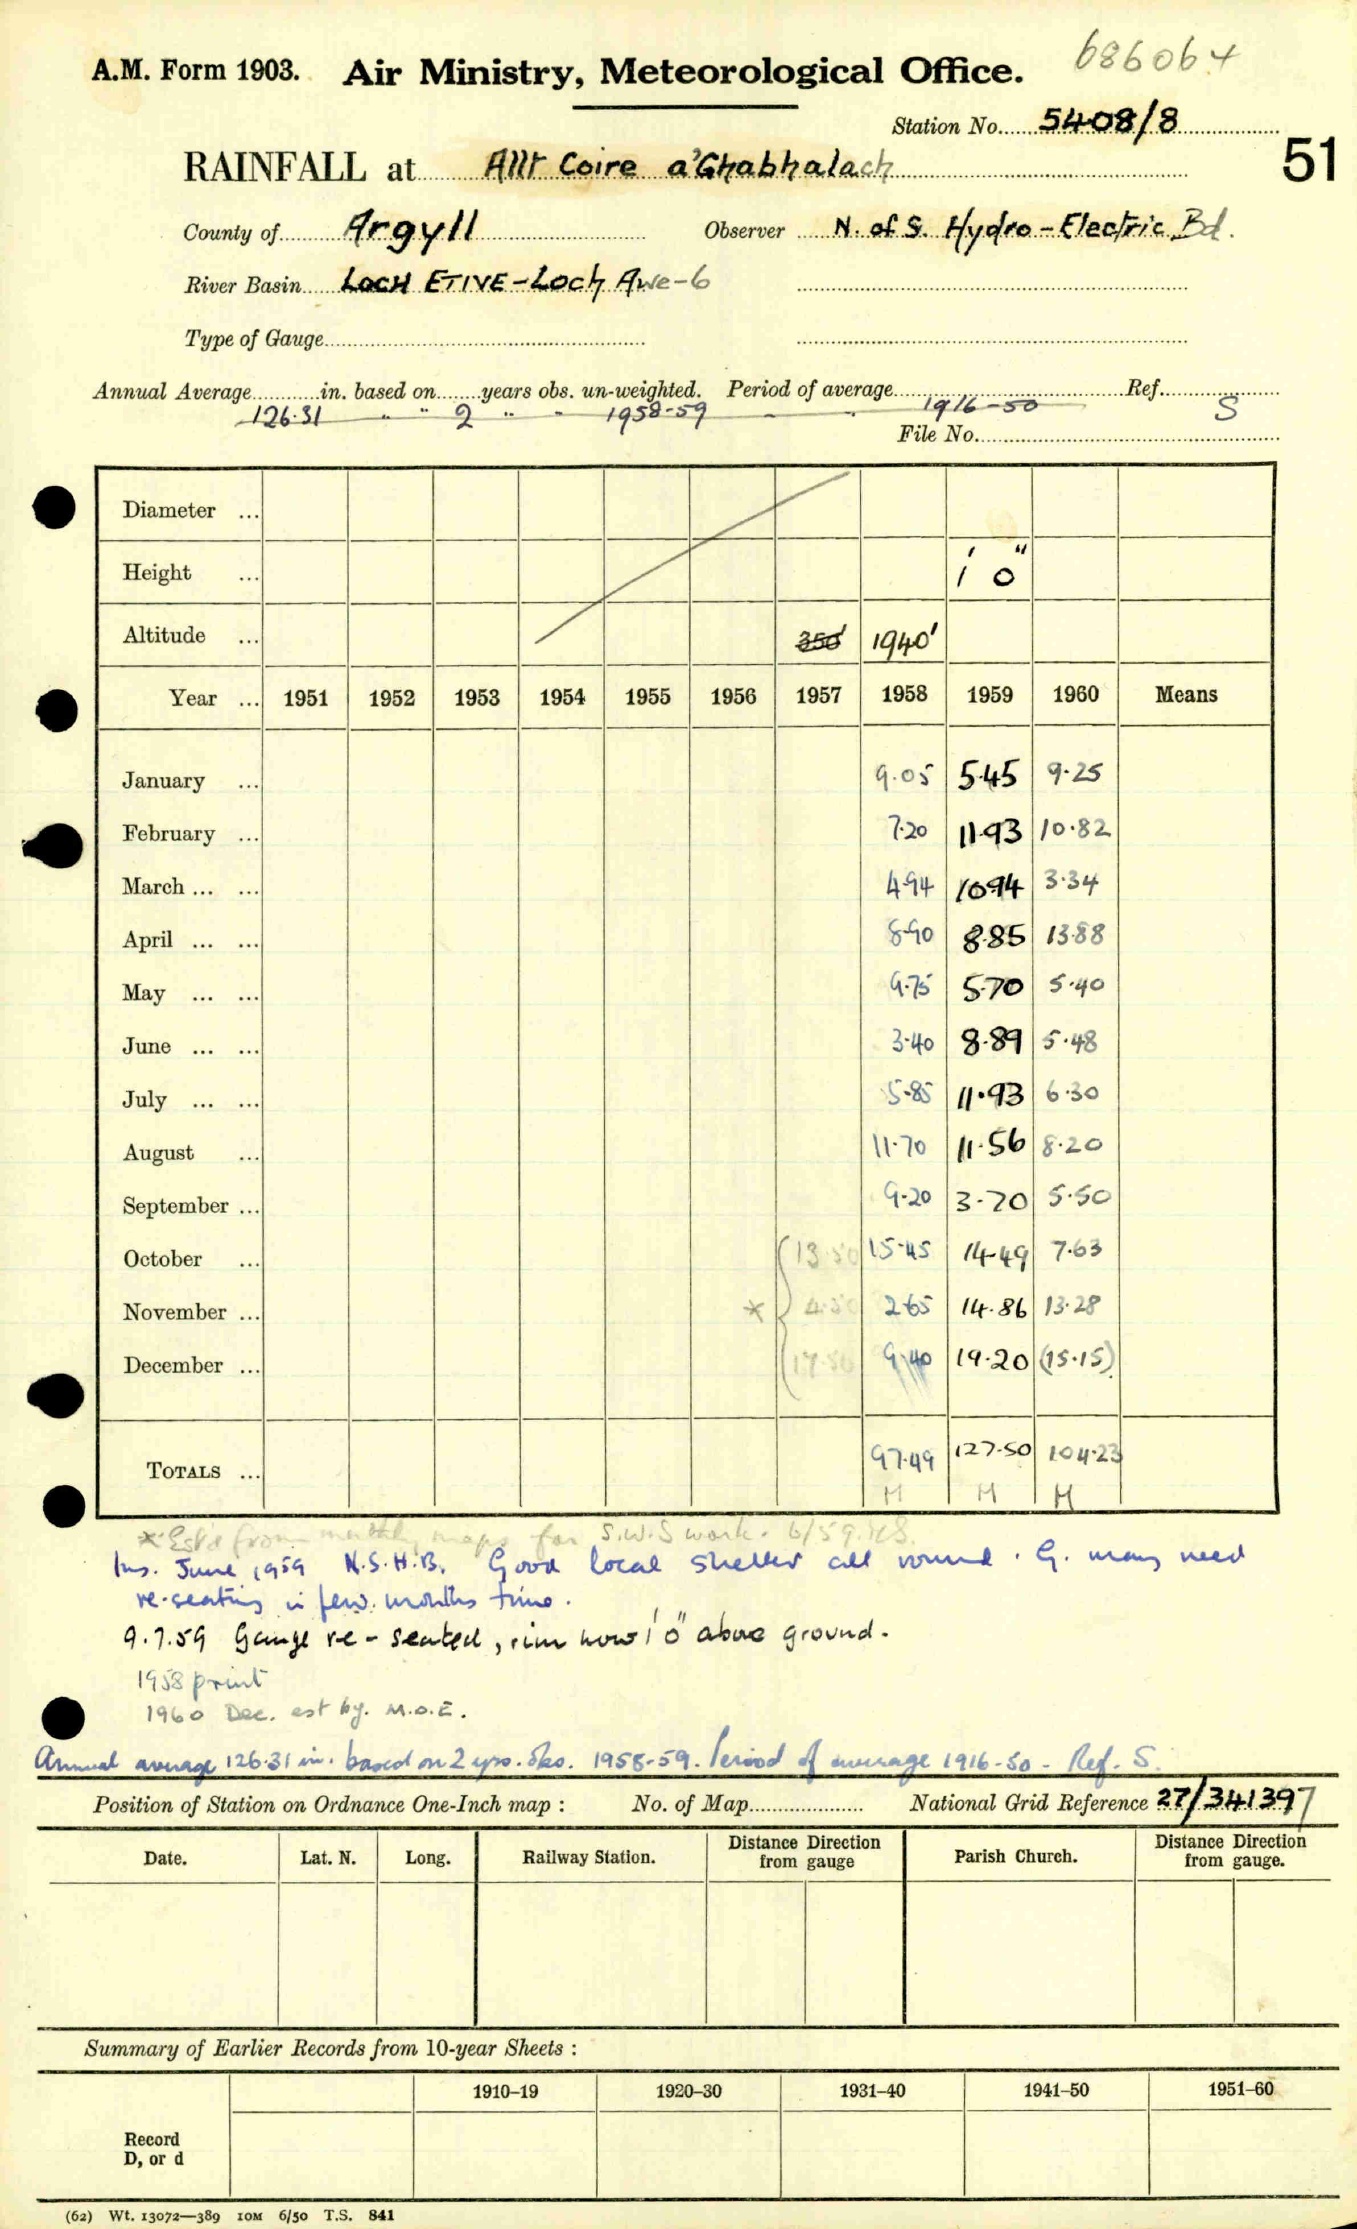 686064
A.M. Form 1903. Air Ministry, Meteorological Office.
Station No. 5408/8
51
RAINFALL at Allt Coire a'Ghabhalach
County of Argyll Observer N. of S. Hydro-Electric Bd.
River Basin LOCH ETIVE - Loch Awe-6
Type of Gauge
Annual Average in. based on years obs. un-weighted. Period of average Ref.
126.31 " " 2 " " 1958-59 " " 1916-50 S
File No.
Diameter ...
Height ... 1' 0"
Altitude ... 350' 1940'
Year ... 1951 1952 1953 1954 1955 1956 1957 1958 1959 1960 Means
January ... 9.05 5.45 9.25
February ... 7.20 11.93 10.82
March ... ... 4.94 10.94 3.34
April ... ... 8.90 8.85 13.88
May ... ... 9.75 5.70 5.40
June ... ... 3.40 8.89 5.48
July ... ... 5.85 11.93 6.30
August ... 11.70 11.56 8.20
September ... 9.20 3.70 5.50
October ... 13.50 15.45 14.49 7.63
November ... * 4.50 2.65 14.86 13.28
December ... 17.50 9.40 19.20 (15.15)
TOTALS ... 97.49 127.50 104.23
M M M
* Est'd from monthly maps for S.W.S work. 6/59.
Ins. June 1959 N.S.H.B. Good local shelter all round. G. may need
re-seating in few months time.
9.7.59 Gauge re-seated, rim now 1' 0" above ground.
1958 print
1960 Dec. est by. M.O.E.
Annual average 126.31 in. based on 2 yrs. obs. 1958-59. Period of average 1916-50 - Ref. S.
Position of Station on Ordnance One-Inch map : No. of Map National Grid Reference 27/341397
Date. Lat. N. Long. Railway Station. Distance Direction from gauge Parish Church. Distance Direction from gauge.
Summary of Earlier Records from 10-year Sheets :
1910-19 1920-30 1931-40 1941-50 1951-60
Record
D, or d
(62) Wt. 13072—389 10M 6/50 T.S. 841